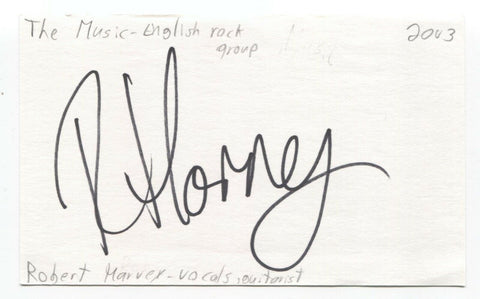 The Music-English rock
group
2003
R Harvey
Robert Harvey-vocals, guitarist